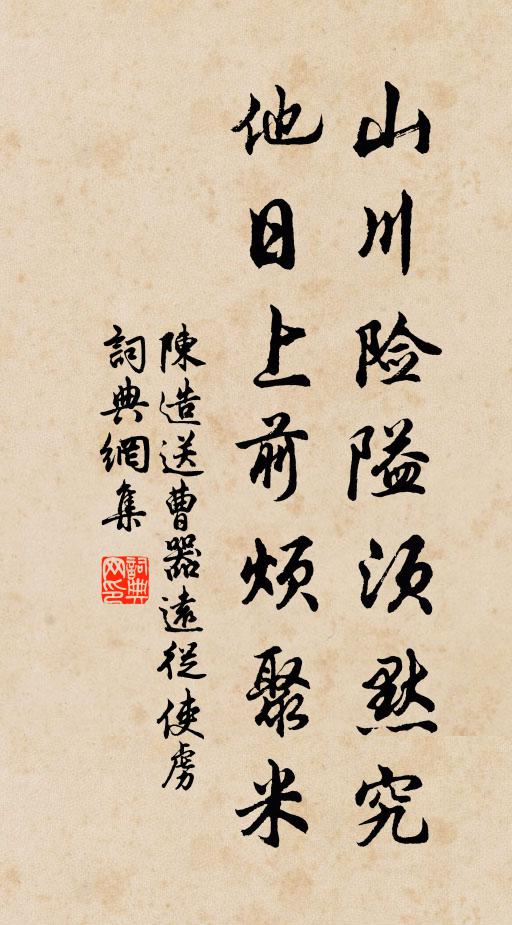 山川险隘须默究
他日上前烦聚米
陳造送曹器遠從使虏
詞典網集
詞典网印